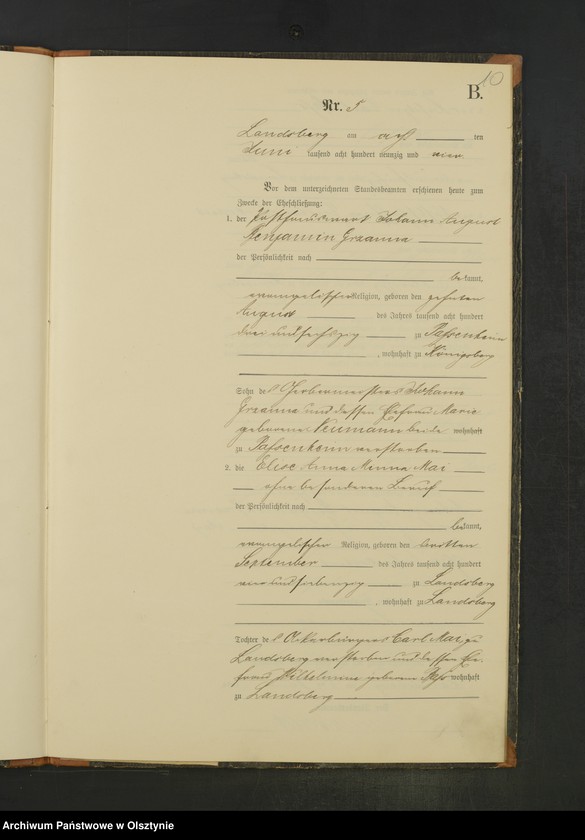 10
B.
Nr. 5
Landsberg am acht ten
Juni tausend acht hundert neunzig und vier.
Vor dem unterzeichneten Standesbeamten erschienen heute zum
Zwecke der Eheschließung:
1. der Johann August
Benjamin Grzanna
der Persönlichkeit nach
bekannt,
evangelischer Religion, geboren den zehnten
August des Jahres tausend acht hundert
drei und sechszig zu Passenheim
, wohnhaft zu Königsberg
Sohn des Gerbermeisters Johann
Grzanna und dessen Ehefrau Marie
geborene Neumann beide wohnhaft
zu Passenheim verstorben
2. die Elise Anna Minna Mai
ohne besonderen Beruf
der Persönlichkeit nach
bekannt,
evangelischer Religion, geboren den
September des Jahres tausend acht hundert
vier und siebenzig zu Landsberg
, wohnhaft zu Landsberg
Tochter des Ackerbürgers Carl Mai zu
Landsberg verstorben und dessen Ehe-
frau Wilhelmine geborene wohnhaft
zu Landsberg
Archiwum Państwowe w Olsztynie